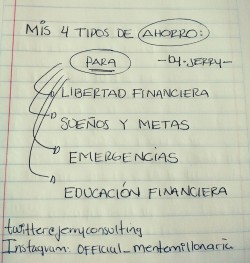 MIS 4 TIPOS DE AHORRO:
PARA -by. JERRY-
LIBERTAD FINANCIERA
SUEÑOS Y METAS
EMERGENCIAS
EDUCACIÓN FINANCIERA
twitter@jerryconsulting
Instagram: OFFICIAL_mentemillonaria